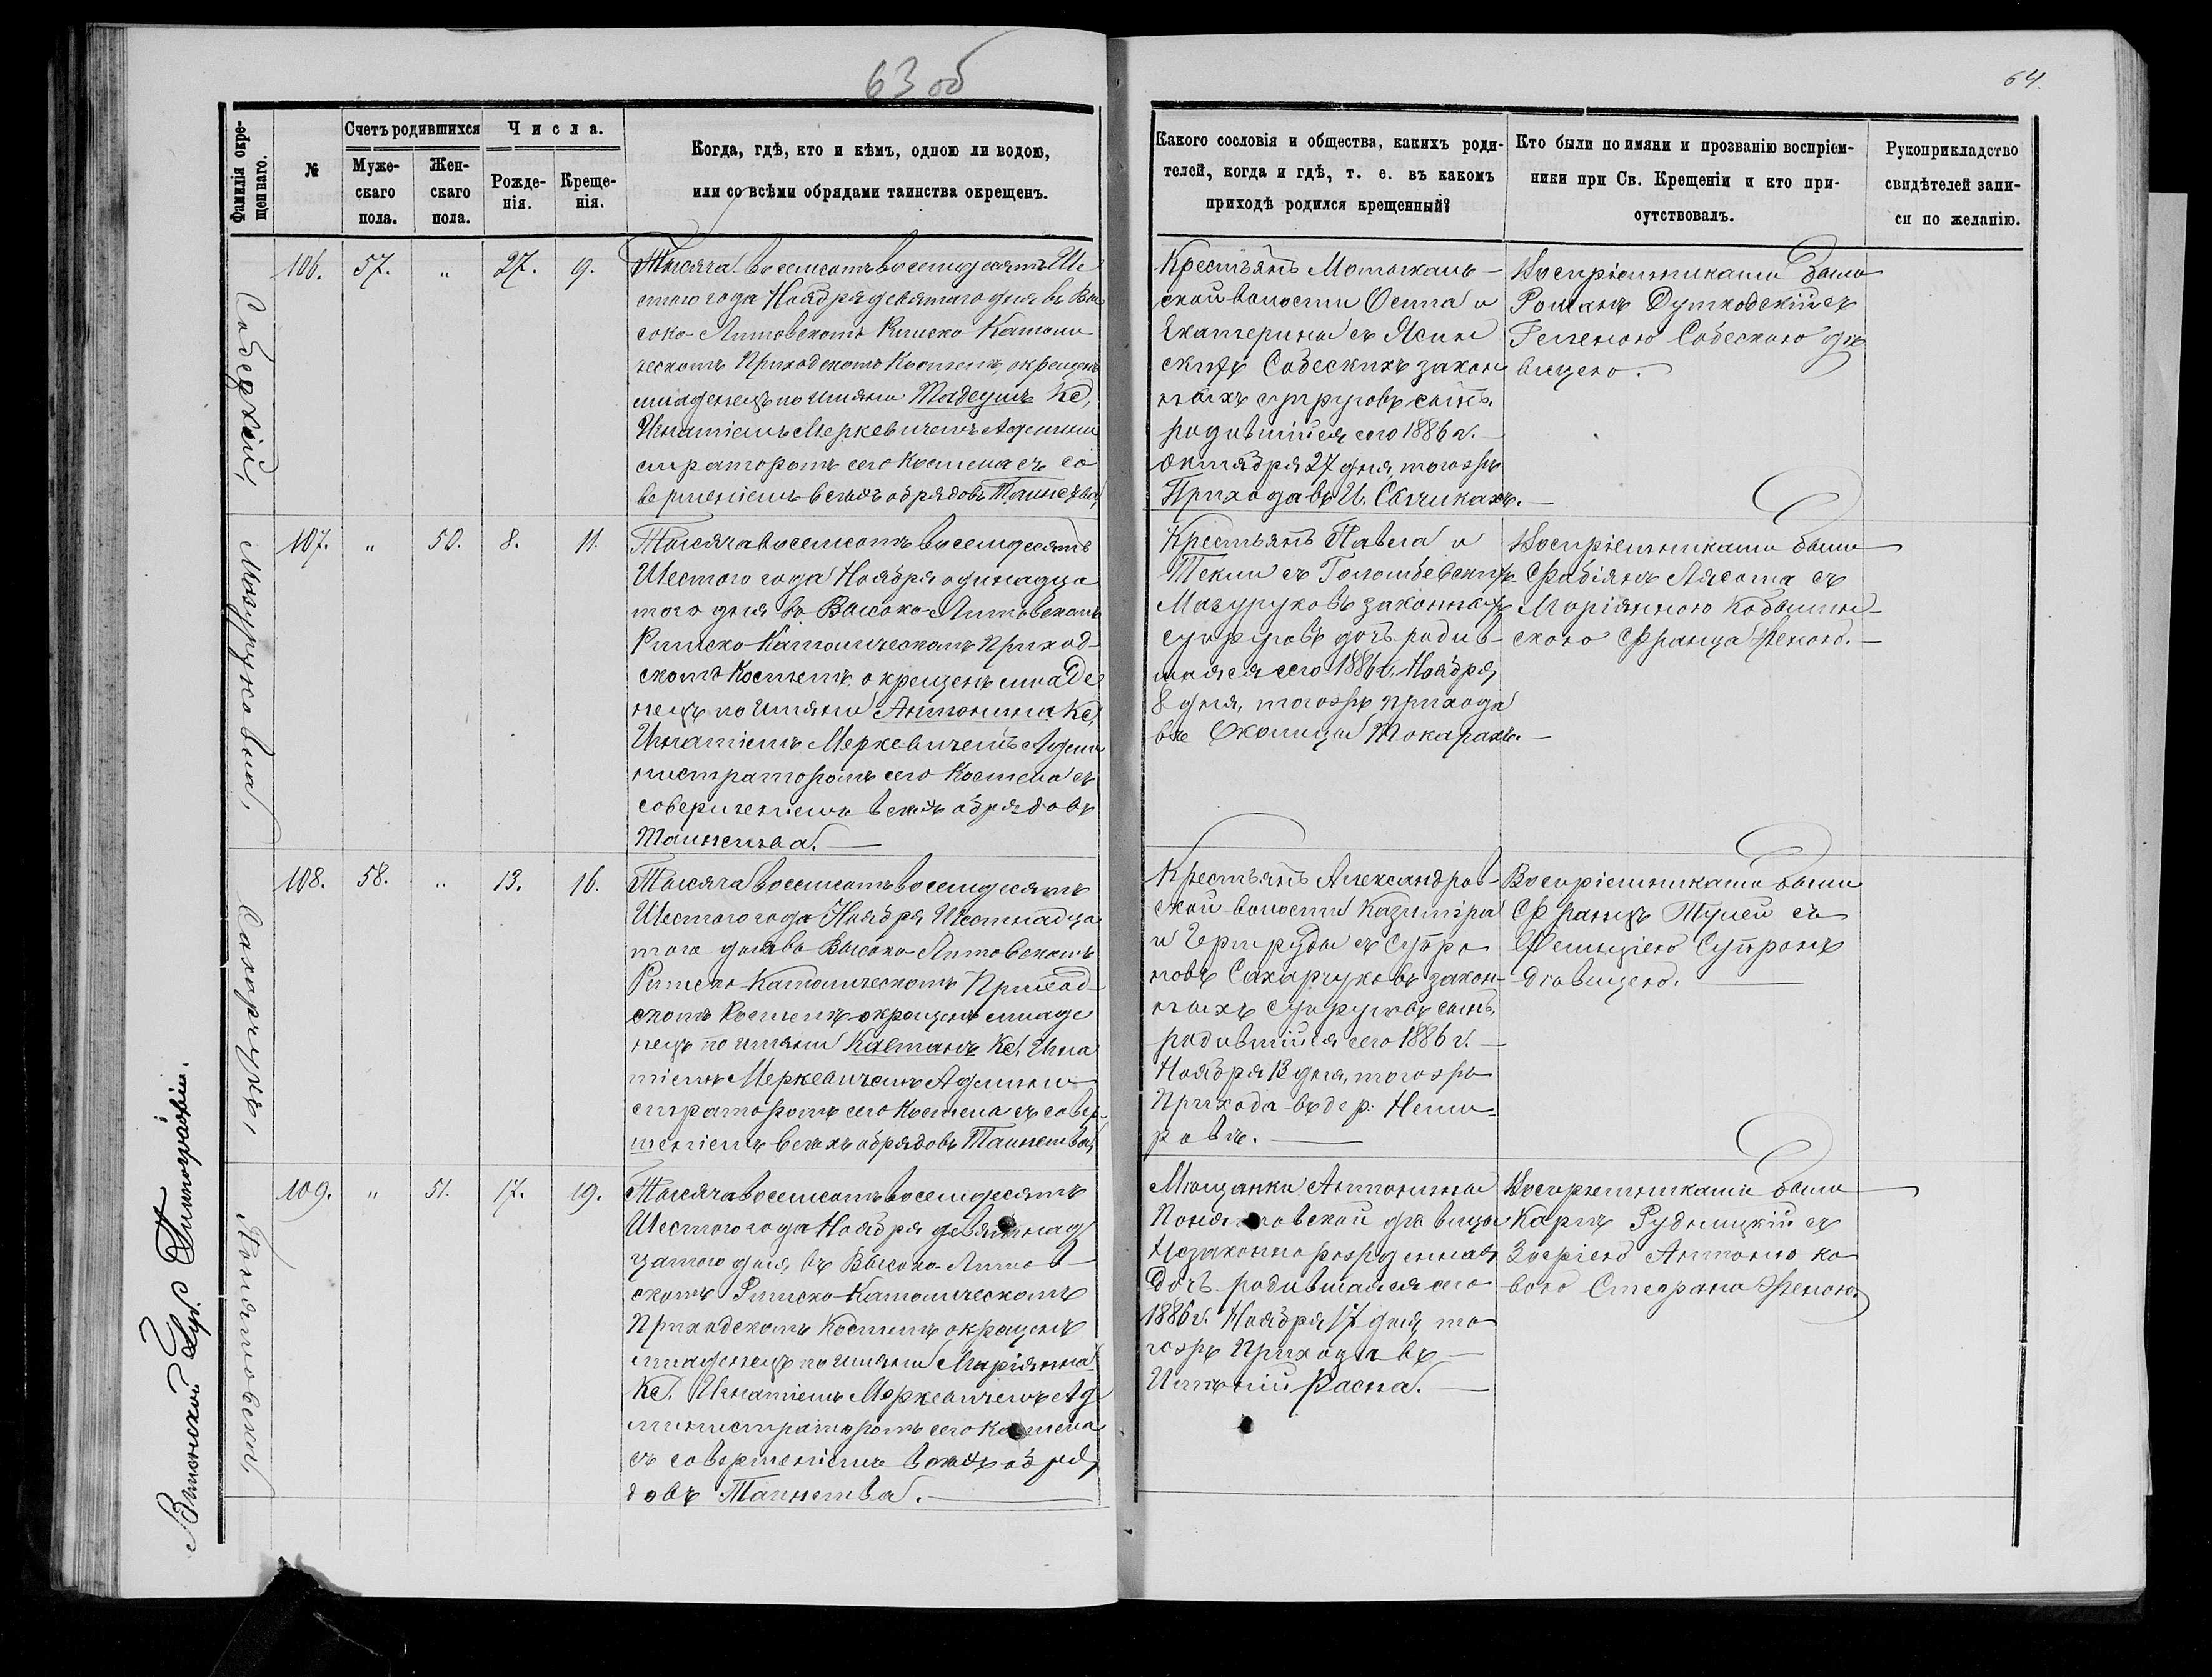 63 об
64.
Фамилія окре-
щеннаго.
№
Счетъ родившихся
Муже-
скаго
пола.
Жен-
скаго
пола.
Числа.
Рожде-
нія.
Креще-
нія.
Когда, гдѣ, кто и кѣмъ, одною ли водою,
или со всѣми обрядами таинства окрещенъ.
Какого сословія и общества, какихъ роди-
телей, когда и гдѣ, т. е. въ какомъ
приходѣ родился крещенный?
Кто были по имяни и прозванію воспріем-
ники при Св. Крещеніи и кто при-
сутствовалъ.
Рукоприкладство
свидѣтелей запи-
си по желанію.
Собескій,
106.
57.
"
27.
9.
Тысяча восемсотъ восемдесятъ Ше
стого года Ноября девятаго дня въ Вы
соко-Литовскомъ Римско Католи
ческомъ Приходскомъ Костелѣ, окрещенъ
младенецъ по имяни Тадеушъ Кс,
Игнатіемъ Меркевичемъ Админи
страторомъ сего Костела съ со
вершеніемъ всѣхъ обрядовъ Таинства,
Крестьянъ Мотыкаль-
ской волости Осипа и
Екатерины съ Ясин
скихъ Собескихъ закон
ныхъ супруговъ сынъ,
родившійся сего 1886 г. —
Октября 27 дня, тогожъ
Прихода въ И. Сычикахъ. —
Воспріемниками были
Романъ Дутковскій съ
Геленою Собескою дѣ
вицею.
Мазуруковна,
107.
"
50.
8.
11.
Тысяча восемсотъ восемдесятъ
Шестого года Ноября одинадца
того дня въ Высоко-Литовскомъ
Римско-Католическомъ Приход-
скомъ Костелѣ окрещенъ младе
нецъ по имяни Антонина Кс,
Игнатіемъ Меркевичемъ Адми
нистраторомъ сего Костела съ
совершеніемъ всѣхъ обрядовъ
Таинства. —
Крестьянъ Павла и
Текли съ Голомбевскихъ
Мазуруковъ законныхъ
супруговъ дочь родив-
шаяся сего 1886 г. Ноября
8 дня, тогожъ прихода
въ Околицы Токарахъ. —
Воспріемниками были —
Фабіянъ Лясота съ
Маріянною Кобылин-
скою Франца женою. —
Сахарчукъ,
108.
58.
"
13.
16.
Тысяча восемсотъ восемдесятъ
Шестого года Ноября Шестнадца
того дня въ Высоко-Литовскомъ
Римско-Католическомъ Приход-
скомъ Костелѣ окрещенъ младе
нецъ по имяни Каетанъ Кс, Игна
тіемъ Меркевичемъ Админи-
страторомъ сего Костела съ совер-
шеніемъ всѣхъ обрядовъ Таинства,
Крестьянъ Александров-
ской волости Казиміра
и Гертруды съ Супро
новъ Сахарчуковъ закон-
ныхъ супруговъ сынъ,
родившійся сего 1886 г. —
Ноября 13 дня, тогожъ
Прихода въ дер: Неми-
ровѣ. —
Воспріемниками были
Францъ Тулей съ
Фелиціею Супронъ
дѣвицею. —
Понятовская,
109.
"
51.
17.
19.
Тысяча восемсотъ восемдесятъ
Шестого года Ноября девятнад
цатого дня въ Высоко-Литов-
скомъ Римско-Католическомъ
Приходскомъ Костелѣ окрещенъ
младенецъ по имяни Маріянна
Кс. Игнатіемъ Меркевичемъ Ад
министраторомъ сего Костела
съ совершеніемъ всѣхъ обря
довъ Таинства. —
Мѣщанки Антонины
Понятовской дѣвицы
Незаконнорожденная
дочь родившаяся сего
1886 г. Ноября 17 дня, то
гожъ Прихода въ —
Имѣніи Расна. —
Воспріемниками были —
Карлъ Рудницкій съ
Зофіею Антонюко
вою Стефана женою.
Виленской Губ. Типографіи.